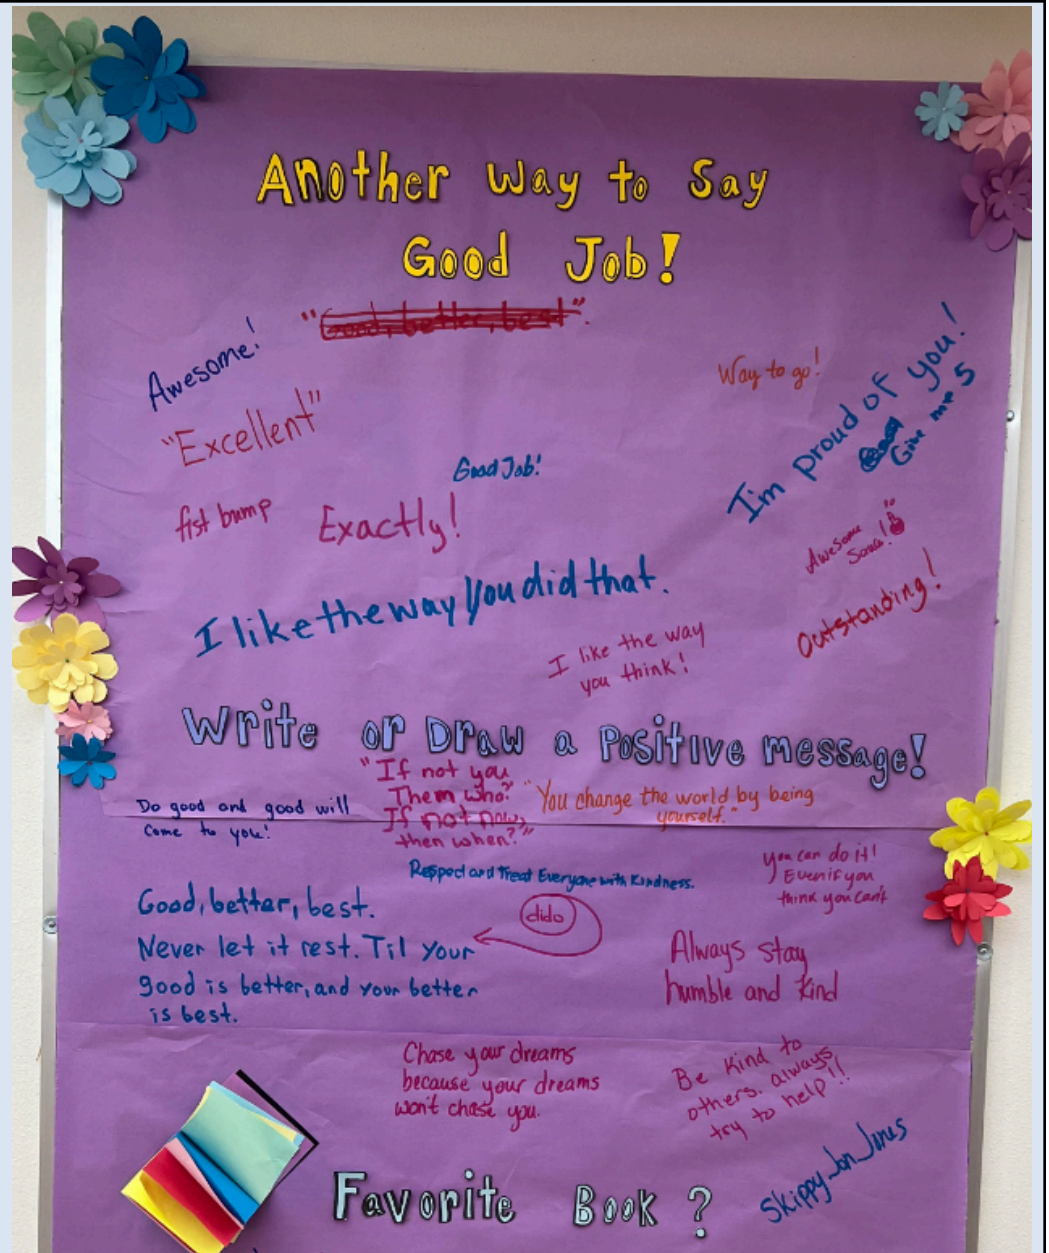 Another Way to Say
Good Job!
"Good, better, best".
Awesome!
Way to go!
I'm proud of you!
Give me 5
"Excellent"
Good Job!
fist bump
Exactly!
Awesome
Sauce!
I like the way you did that.
Outstanding!
I like the way
you think!
Write or Draw a Positive message!
"If not you
Them who?
If not now,
then when?"
Do good and good will
come to you!
"You change the world by being
yourself."
Respect and Treat Everyone with Kindness.
you can do it!
Even if you
think you can't
Good, better, best.
Never let it rest. Til your
good is better, and your better
is best.
dido
Always stay
humble and kind
Chase your dreams
because your dreams
won't chase you.
Be kind to
others. always
try to help!!
Skippy Jon Jones
Favorite Book?